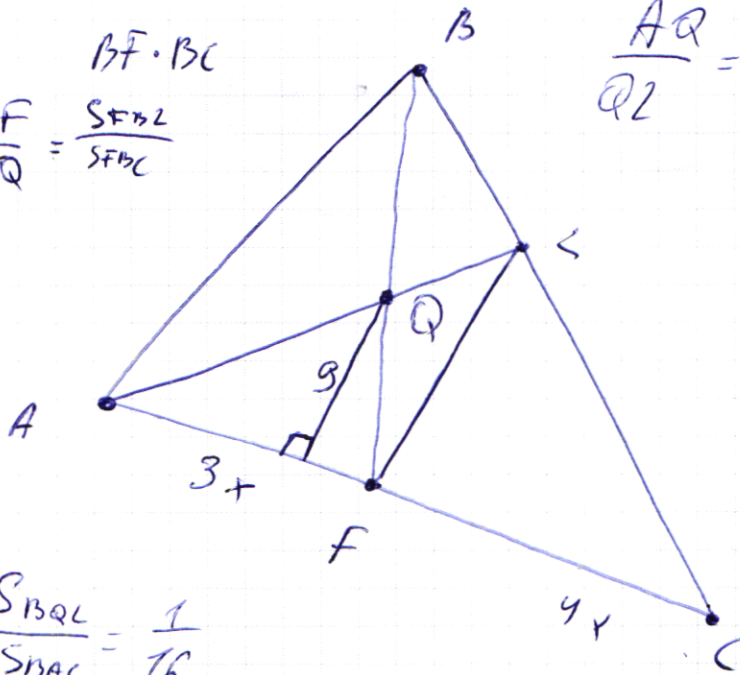 B
BF · BC
AQ / QL =
F / Q = S FBL / S FBC
L
Q
9
A
3x
F
S BQL / S BAC = 1 / 16
4x
C